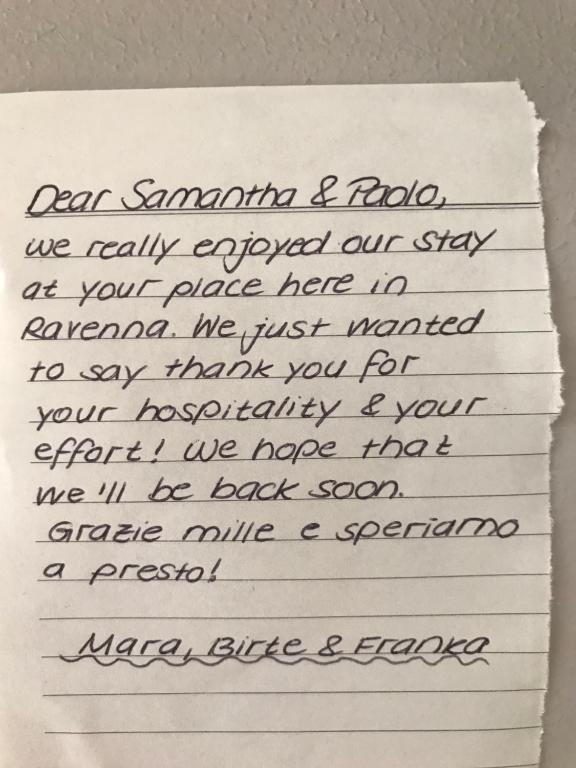 Dear Samantha & Paolo,
we really enjoyed our stay
at your place here in
Ravenna. We just wanted
to say thank you for
your hospitality & your
effort! We hope that
we'll be back soon.
Grazie mille e speriamo
a presto!
Mara, Birte & Franka